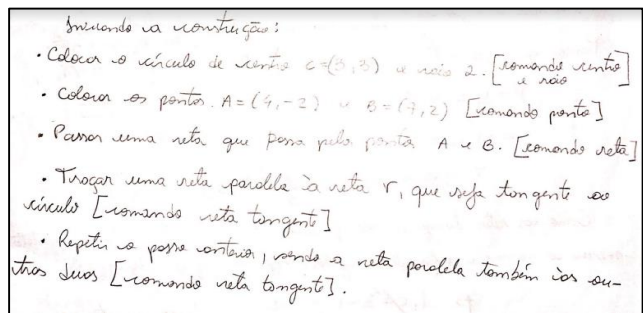 Iniciando a construção:
• Colocar o círculo de centro C=(3,3) e raio 2. [comando centro
e raio]
• Colocar os pontos. A=(4,-2) e B=(7,2) [comando ponto]
• Passar uma reta que passa pelo ponto A e B. [comando reta]
• Traçar uma reta paralela à reta r, que seja tangente ao
círculo [comando reta tangente]
• Repetir o passo anterior, sendo a reta paralela também às ou-
tras duas [comando reta tangente].